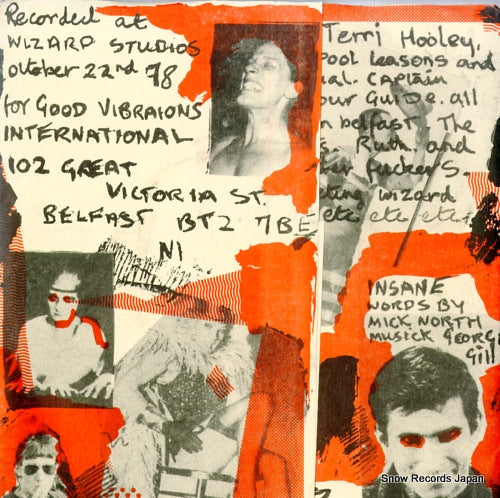 Recorded at
WIZARD STUDIOS
october 22nd 78
for GOOD VIBRAIONS
INTERNATIONAL
102 GREAT
VICTORIA ST.
BELFAST BT2 7BE
NI
Terri Hooley.
ool Leasons and
al. CAPTAIN
our GUIDE. all
n belfast. The
s. Ruth. and
her fuckers.
ting wizard
etc etc etc
INSANE
WORDS BY
MICK NORTH
MUSICK GEORGE
Gill
Snow Records Japan